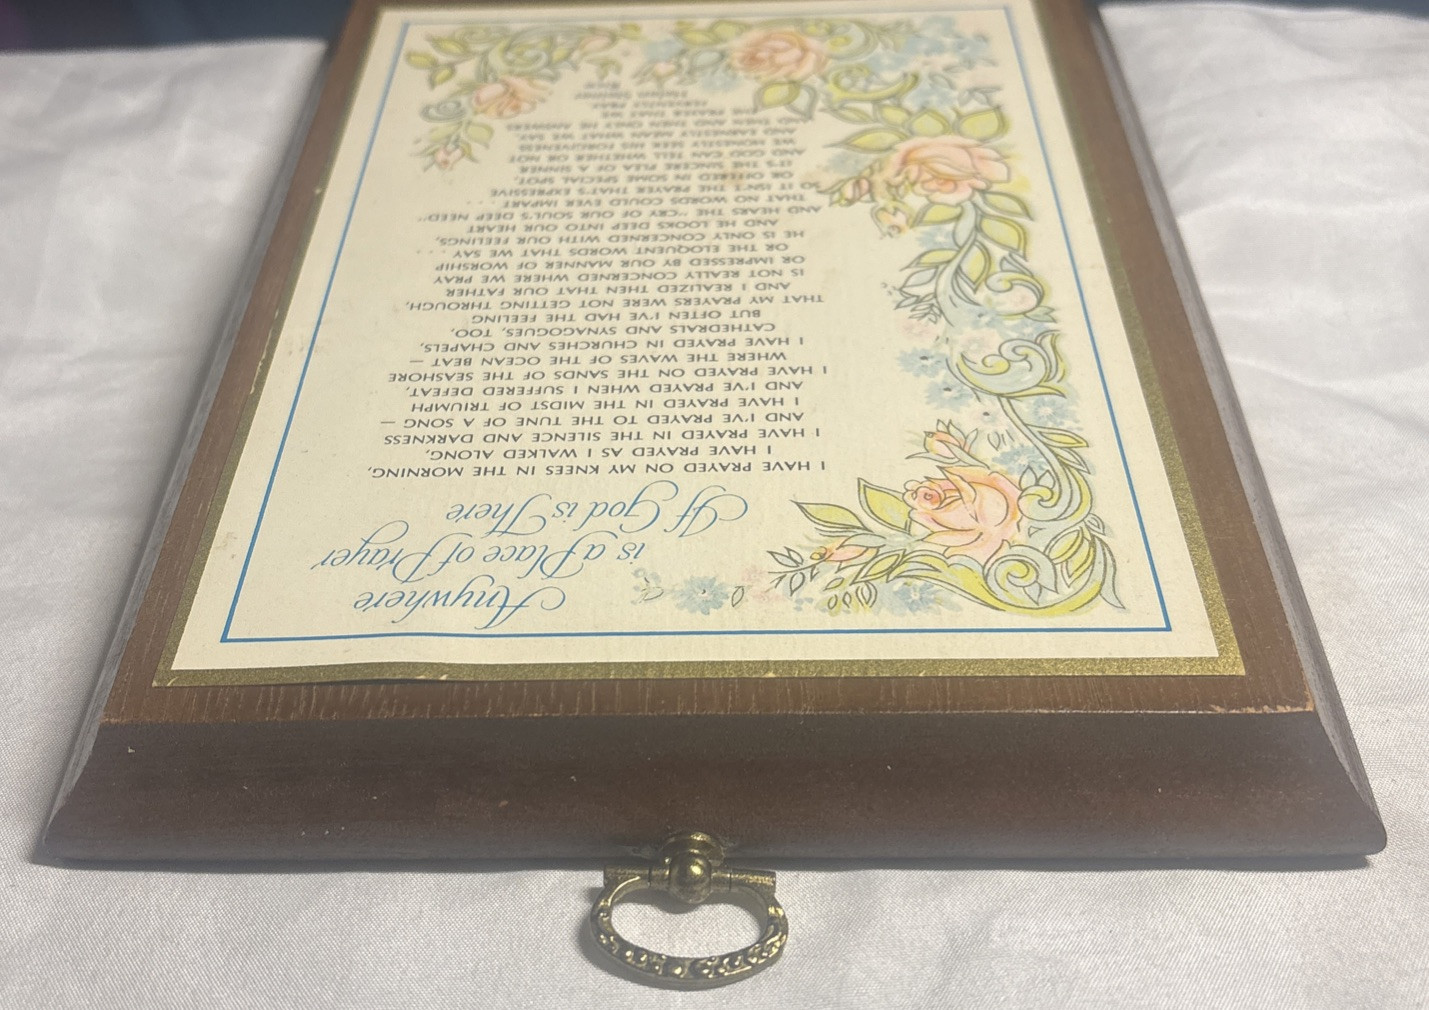 Anywhere
is a Place of Prayer
If God is There
I HAVE PRAYED ON MY KNEES IN THE MORNING,
I HAVE PRAYED AS I WALKED ALONG,
I HAVE PRAYED IN THE SILENCE AND DARKNESS
AND I'VE PRAYED TO THE TUNE OF A SONG —
I HAVE PRAYED IN THE MIDST OF TRIUMPH
AND I'VE PRAYED WHEN I SUFFERED DEFEAT,
I HAVE PRAYED ON THE SANDS OF THE SEASHORE
WHERE THE WAVES OF THE OCEAN BEAT —
I HAVE PRAYED IN CHURCHES AND CHAPELS,
CATHEDRALS AND SYNAGOGUES, TOO,
BUT OFTEN I'VE HAD THE FEELING
THAT MY PRAYERS WERE NOT GETTING THROUGH,
AND I REALIZED THEN THAT OUR FATHER
IS NOT REALLY CONCERNED WHERE WE PRAY
OR IMPRESSED BY OUR MANNER OF WORSHIP
OR THE ELOQUENT WORDS THAT WE SAY . . .
HE IS ONLY CONCERNED WITH OUR FEELINGS,
AND HE LOOKS DEEP INTO OUR HEART
AND HEARS THE "CRY OF OUR SOUL'S DEEP NEED"
THAT NO WORDS COULD EVER IMPART . . .
SO IT ISN'T THE PRAYER THAT'S EXPRESSIVE
OR OFFERED IN SOME SPECIAL SPOT,
IT'S THE SINCERE PLEA OF A SINNER
AND GOD CAN TELL WHETHER OR NOT
WE HONESTLY SEEK HIS FORGIVENESS
AND EARNESTLY MEAN WHAT WE SAY,
AND THEN AND THEN ONLY HE ANSWERS
THE PRAYER THAT WE
FERVENTLY PRAY.
Helen Steiner
Rice